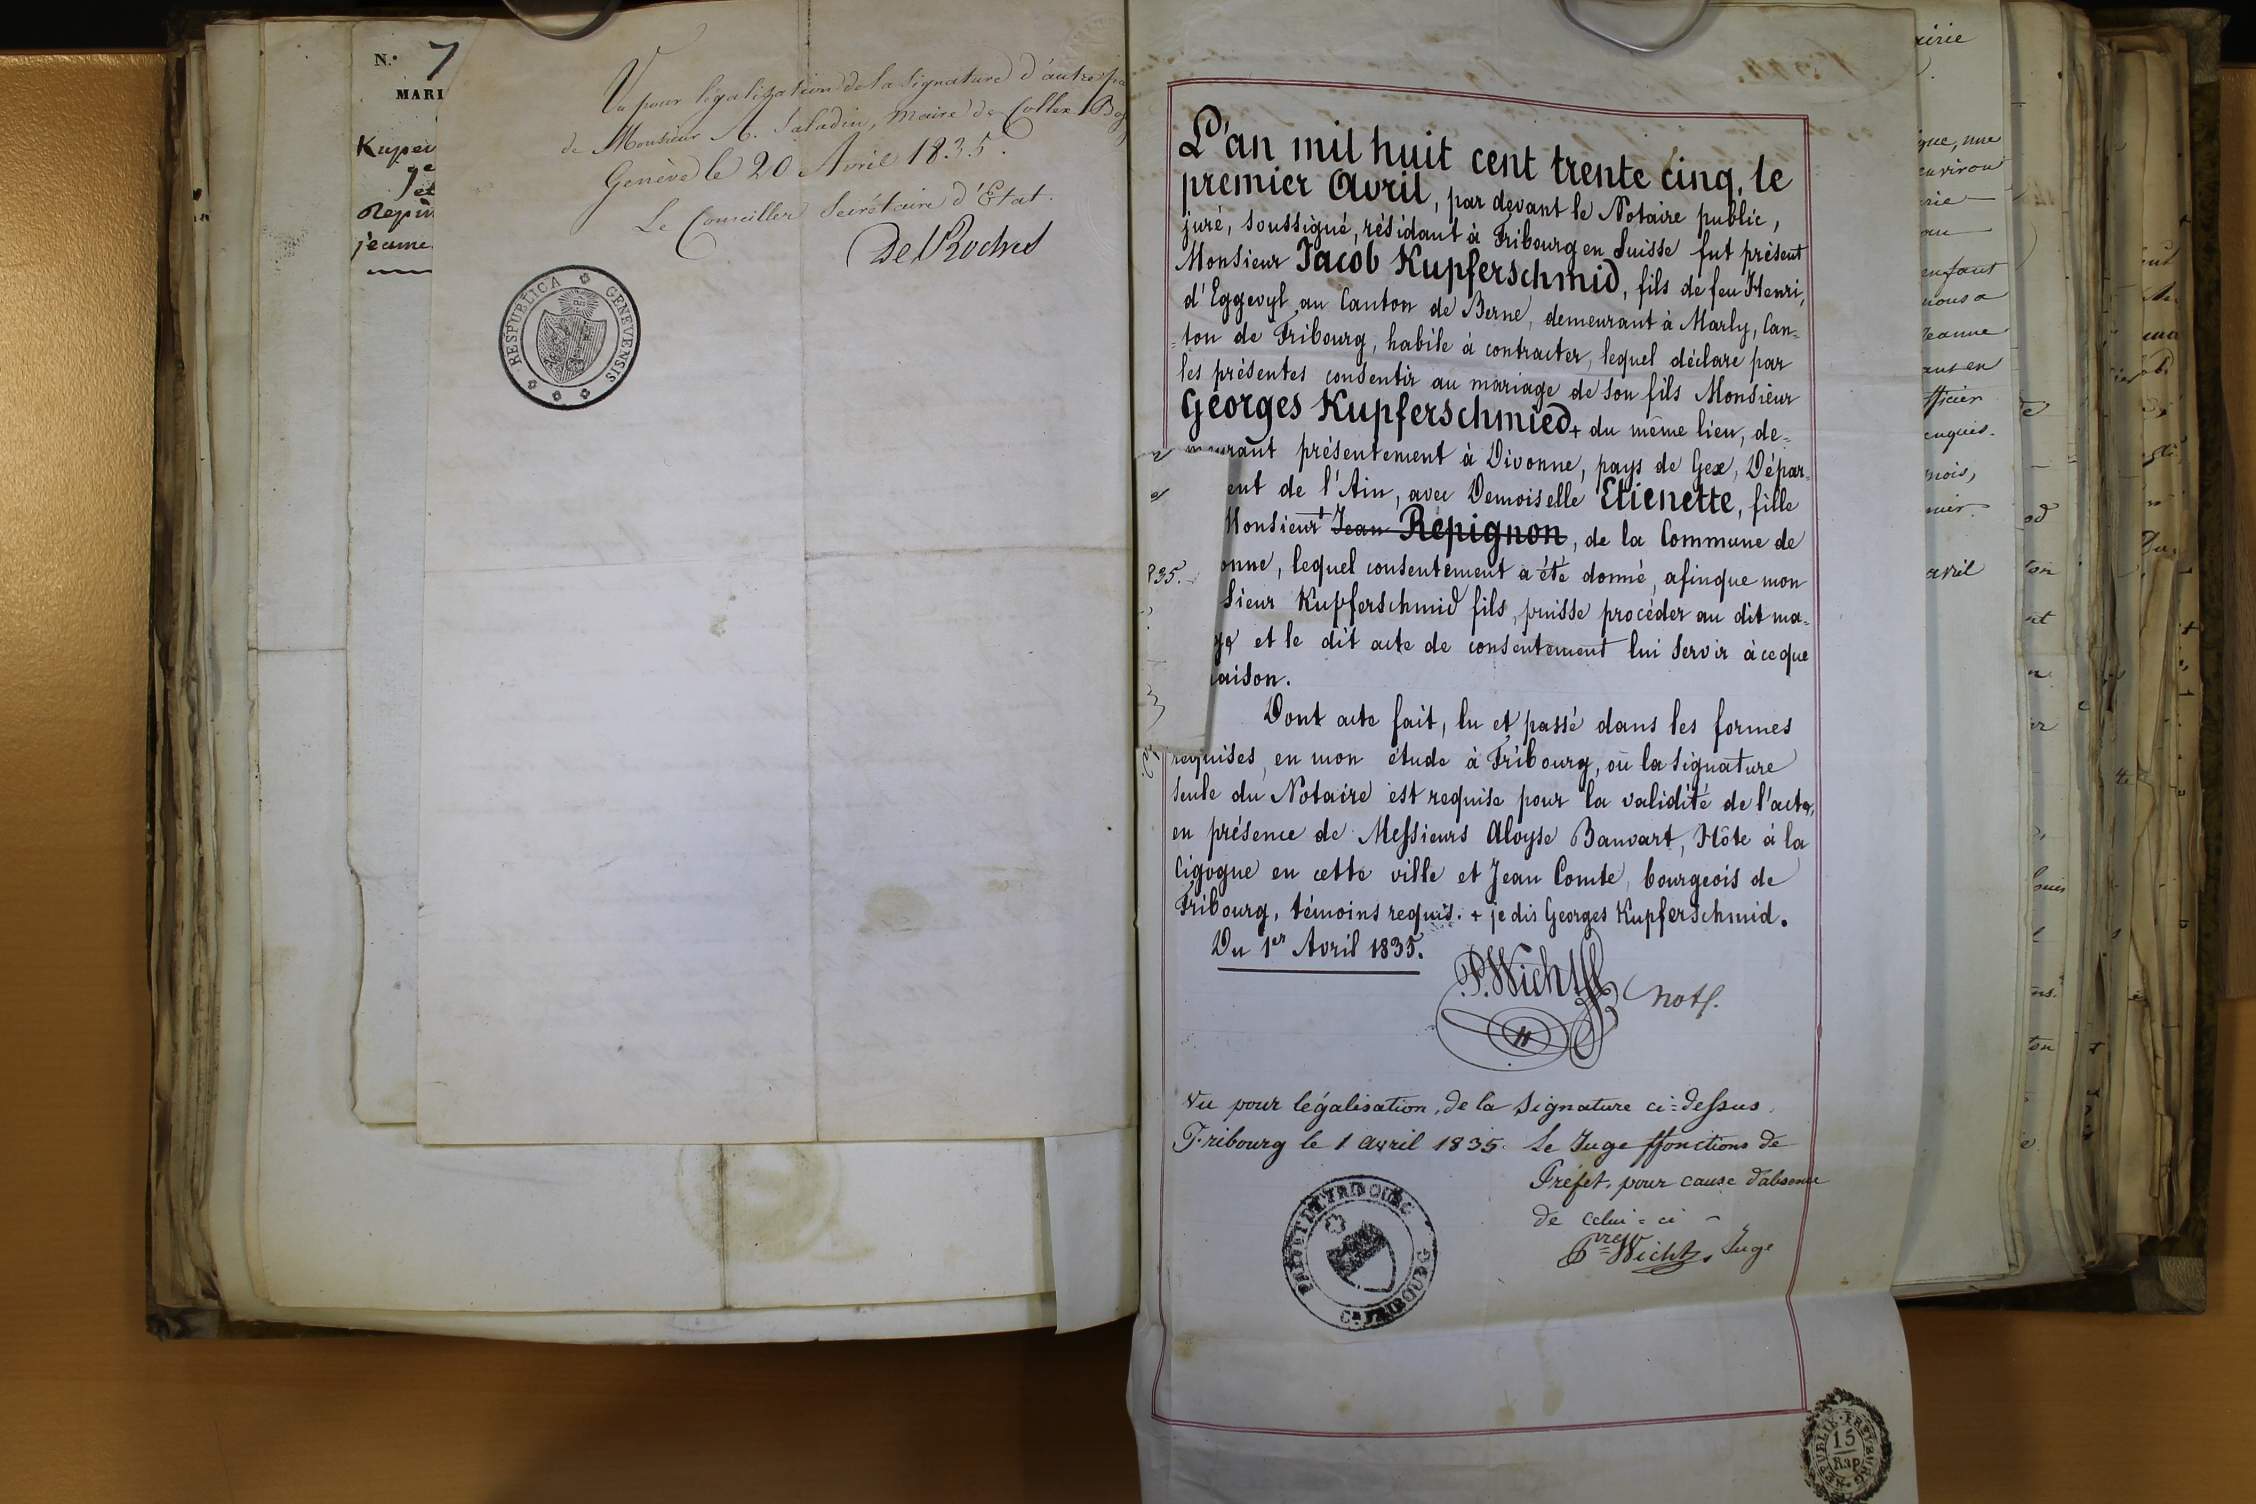 N.o 7
MARI
Kuper
ge
et
Repin
jeanne
Vu pour légalisation de la signature d'autre pa
de Monsieur A. Saladin, Maire de Collex-Bos
Genève le 20 Avril 1835.
Le Conseiller Secrétaire d'Etat.
De Roches
RESPUBLICA GENEVENSIS
L'an mil huit cent trente cinq, le
premier Avril, par devant le Notaire public,
juré, soussigné, résidant à Fribourg en Suisse fut présent
Monsieur Jacob Kupferschmid, fils de feu Henri,
d'Eggevyl au Canton de Berne, demeurant à Marly, Can-
-ton de Fribourg, habile à contracter, lequel déclare par
les présentes consentir au mariage de son fils Monsieur
Georges Kupferschmied + du même lieu, de-
meurant présentement à Divonne, pays de Gex, Dépar-
ent de l'Ain, avec Demoiselle Etienette, fille
Monsieur Jean Repignon, de la Commune de
onne, lequel consentement a été donné, afinque mon
Sieur Kupferschmid fils, puisse procéder au dit ma-
ge et le dit acte de consentement lui servir à ce que
aison.
Dont acte fait, lu et passé dans les formes
requises, en mon étude à Fribourg, où la signature
seule du Notaire est requise pour la validité de l'acte,
en présence de Messieurs Aloyse Banvart, Hôte à la
Cigogne en cette ville et Jean Comte, bourgeois de
Fribourg, témoins requis. + je dis Georges Kupferschmid.
Du 1er Avril 1835.
P. Wicht Not.
Vu pour légalisation, de la signature ci-dessus
Fribourg le 1 avril 1835. Le Juge ffonctions de
Préfet, pour cause d'absence
de celui-ci
Wicht, Juge
835.
REPUBLIK FREYBURG
15
Rap
airie
que, une
environ
rie
ou
enfant
nous a
Jeanne
ans en
fficier
enquis.
mois,
nier
avril